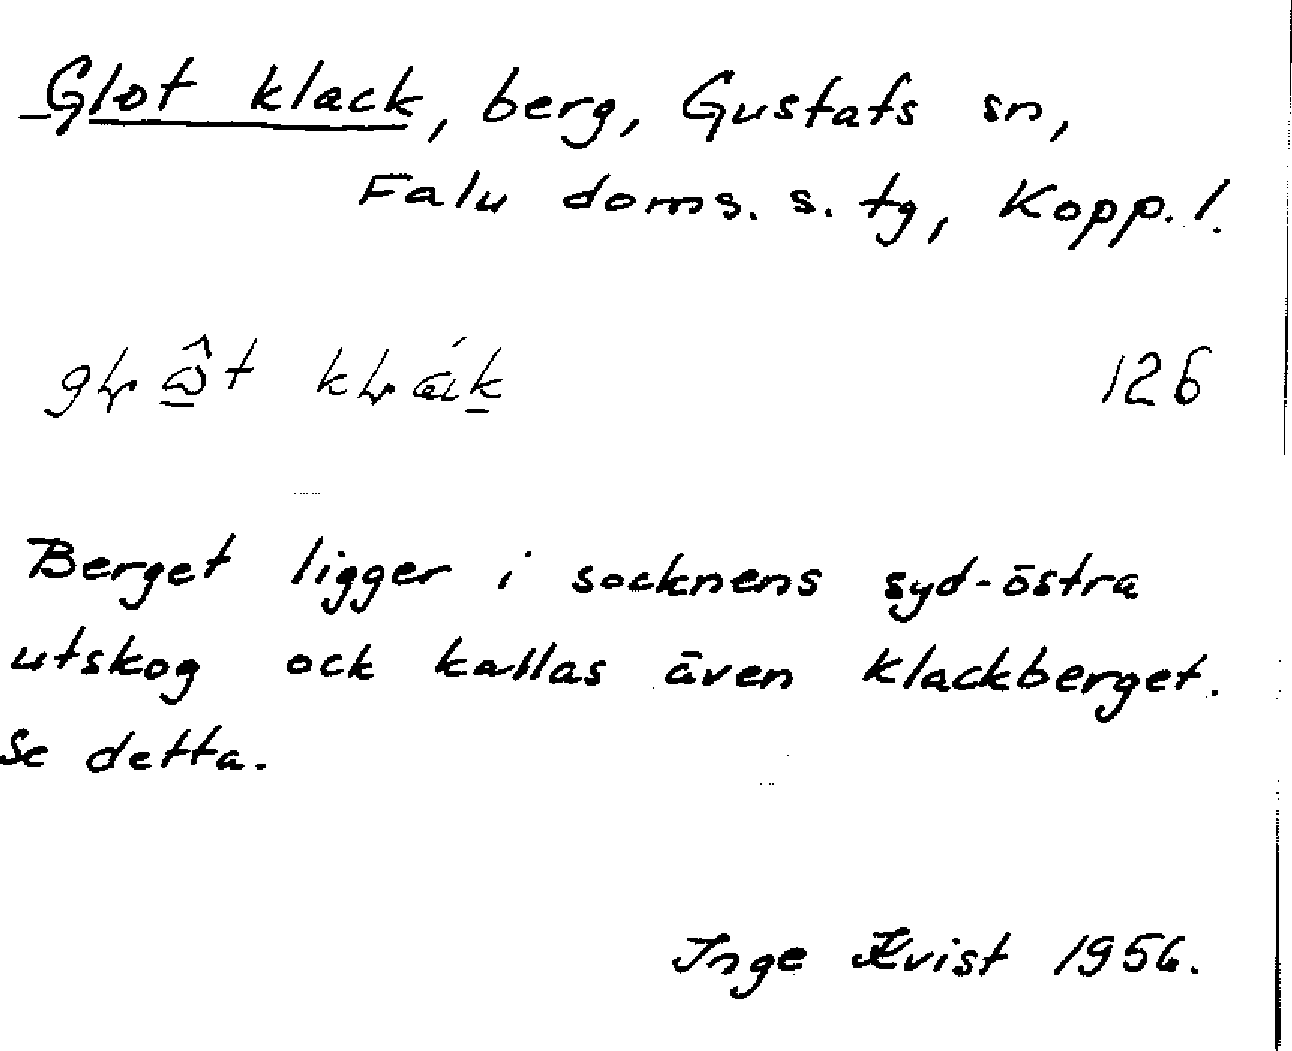 Glot klack, berg, Gustafs sn,
Falu doms. s. tg, Kopp. l.
126
Berget ligger i socknens syd-östra
utskog ock kallas även klackberget.
Se detta.
Inge Kvist 1956.